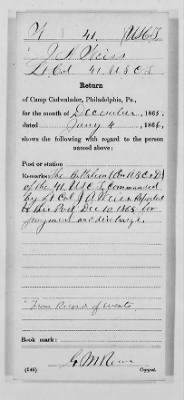 W 41. U.S.C.T.
J. A. Weiss
Lt Col 41. U.S.C.T.
Return
of Camp Cadwalader, Philadelphia, Pa.,
for the month of December, 1865,
dated Jany 4, 1866,
shows the following with regard to the person
unused above:
Post or station
Remarks: The Battalion
of the 41. U.S.C.T. commanded
by Lt Col J. A. Weiss Reported
to this Post Dec 10. 1865 for
payment and discharge.
"From Record of events"
Book mark:
(546) Copyist.